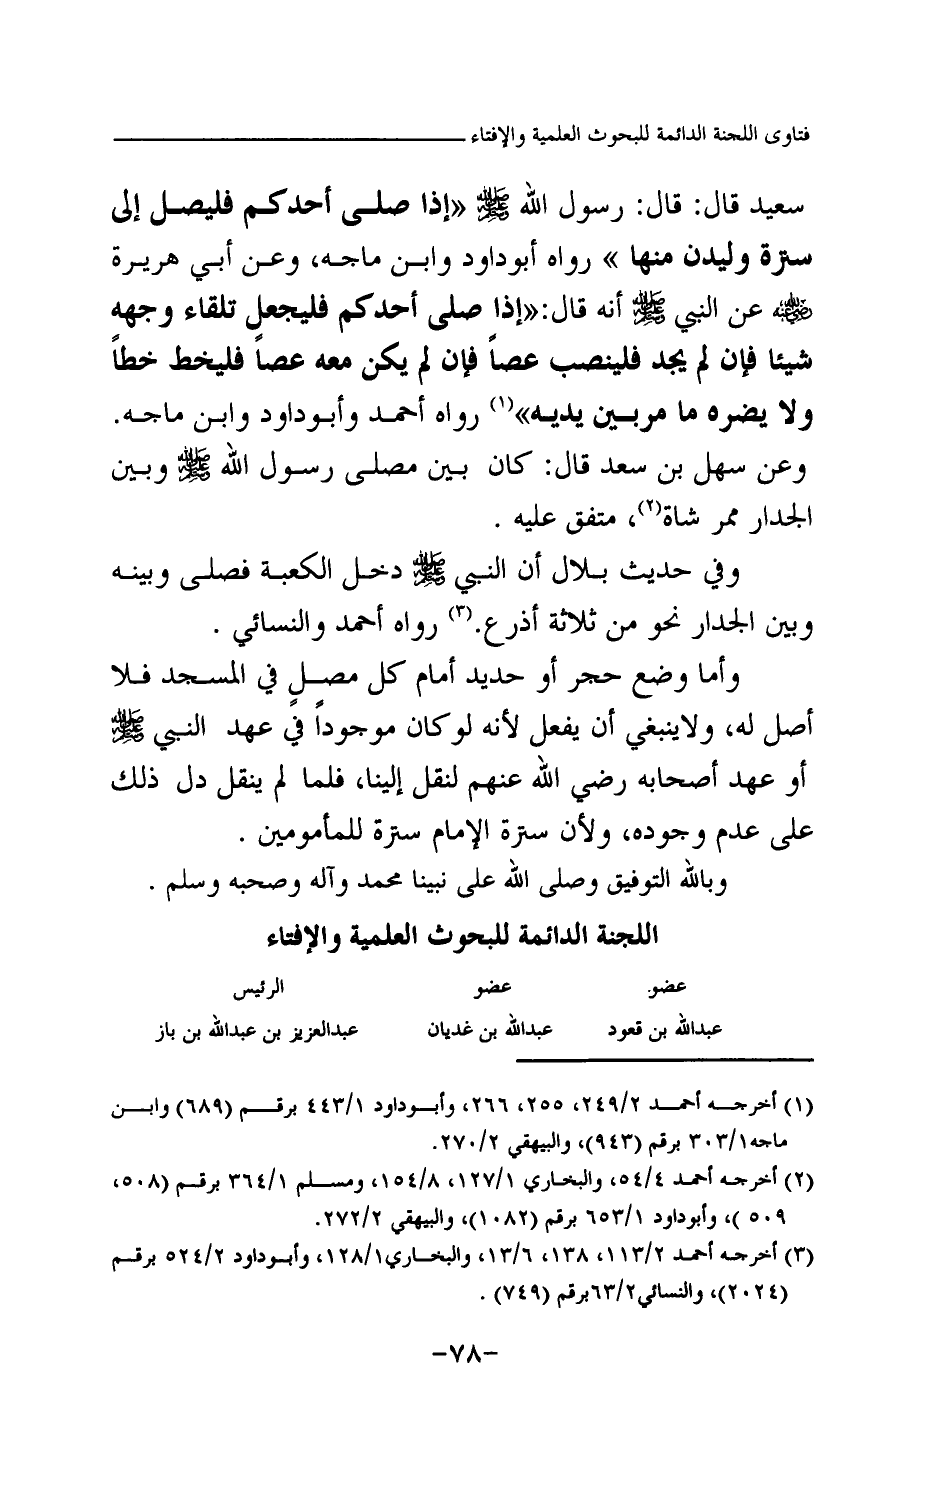 فتاوى اللجنة الدائمة للبحوث العلمية والإفتاء
سعيد قال: قال: رسول الله ﷺ «إذا صلـى أحدكـم فليصـل إلى
سترة وليدن منها » رواه أبوداود وابـن ماجـه، وعـن أبـي هريـرة
رضي الله عنه عن النبي ﷺ أنه قال:«إذا صلى أحدكم فليجعل تلقاء وجهه
شيئا فإن لم يجد فلينصب عصاً فإن لم يكن معه عصاً فليخط خطاً
ولا يضره ما مر بـين يديـه»(١) رواه أحمـد وأبـوداود وابـن ماجـه.
وعن سهل بن سعد قال: كان بـين مصلـى رسـول الله ﷺ وبـين
الجدار ممر شاة(٢)، متفق عليه .
وفي حديث بـلال أن النـبي ﷺ دخـل الكعبـة فصلـى وبينـه
وبين الجدار نحو من ثلاثة أذرع.(٣) رواه أحمد والنسائي .
وأما وضع حجر أو حديد أمام كل مصـلٍ في المسـجد فـلا
أصل له، ولاينبغي أن يفعل لأنه لو كان موجوداً في عهد النـبي ﷺ
أو عهد أصحابه رضي الله عنهم لنقل إلينا، فلما لم ينقل دل ذلك
على عدم وجوده، ولأن سترة الإمام سترة للمأمومين .
وبالله التوفيق وصلى الله على نبينا محمد وآله وصحبه وسلم .
اللجنة الدائمة للبحوث العلمية والإفتاء
عضو. عضو الرئيس
عبدالله بن قعود عبدالله بن غديان عبدالعزيز بن عبدالله بن باز
(١) أخرجـه أحمـد ٢٤٩/٢، ٢٥٥، ٢٦٦، وأبـوداود ٤٤٣/١ برقـم (٦٨٩) وابـن
ماجه٣٠٣/١ برقم (٩٤٣)، والبيهقي ٢٧٠/٢.
(٢) أخرجـه أحمد ٥٤/٤، والبخـاري ١٢٧/١، ١٥٤/٨، ومسـلم ٣٦٤/١ برقـم (٥٠٨،
٥٠٩ )، وأبوداود ٦٥٣/١ برقم (١٠٨٢)، والبيهقي ٢٧٢/٢.
(٣) أخرجـه أحمد ١١٣/٢، ١٣٨، ١٣/٦، والبخـاري١٢٨/١، وأبـوداود ٥٢٤/٢ برقـم
(٢٠٢٤)، والنسائي٦٣/٢برقم (٧٤٩) .
-٧٨-